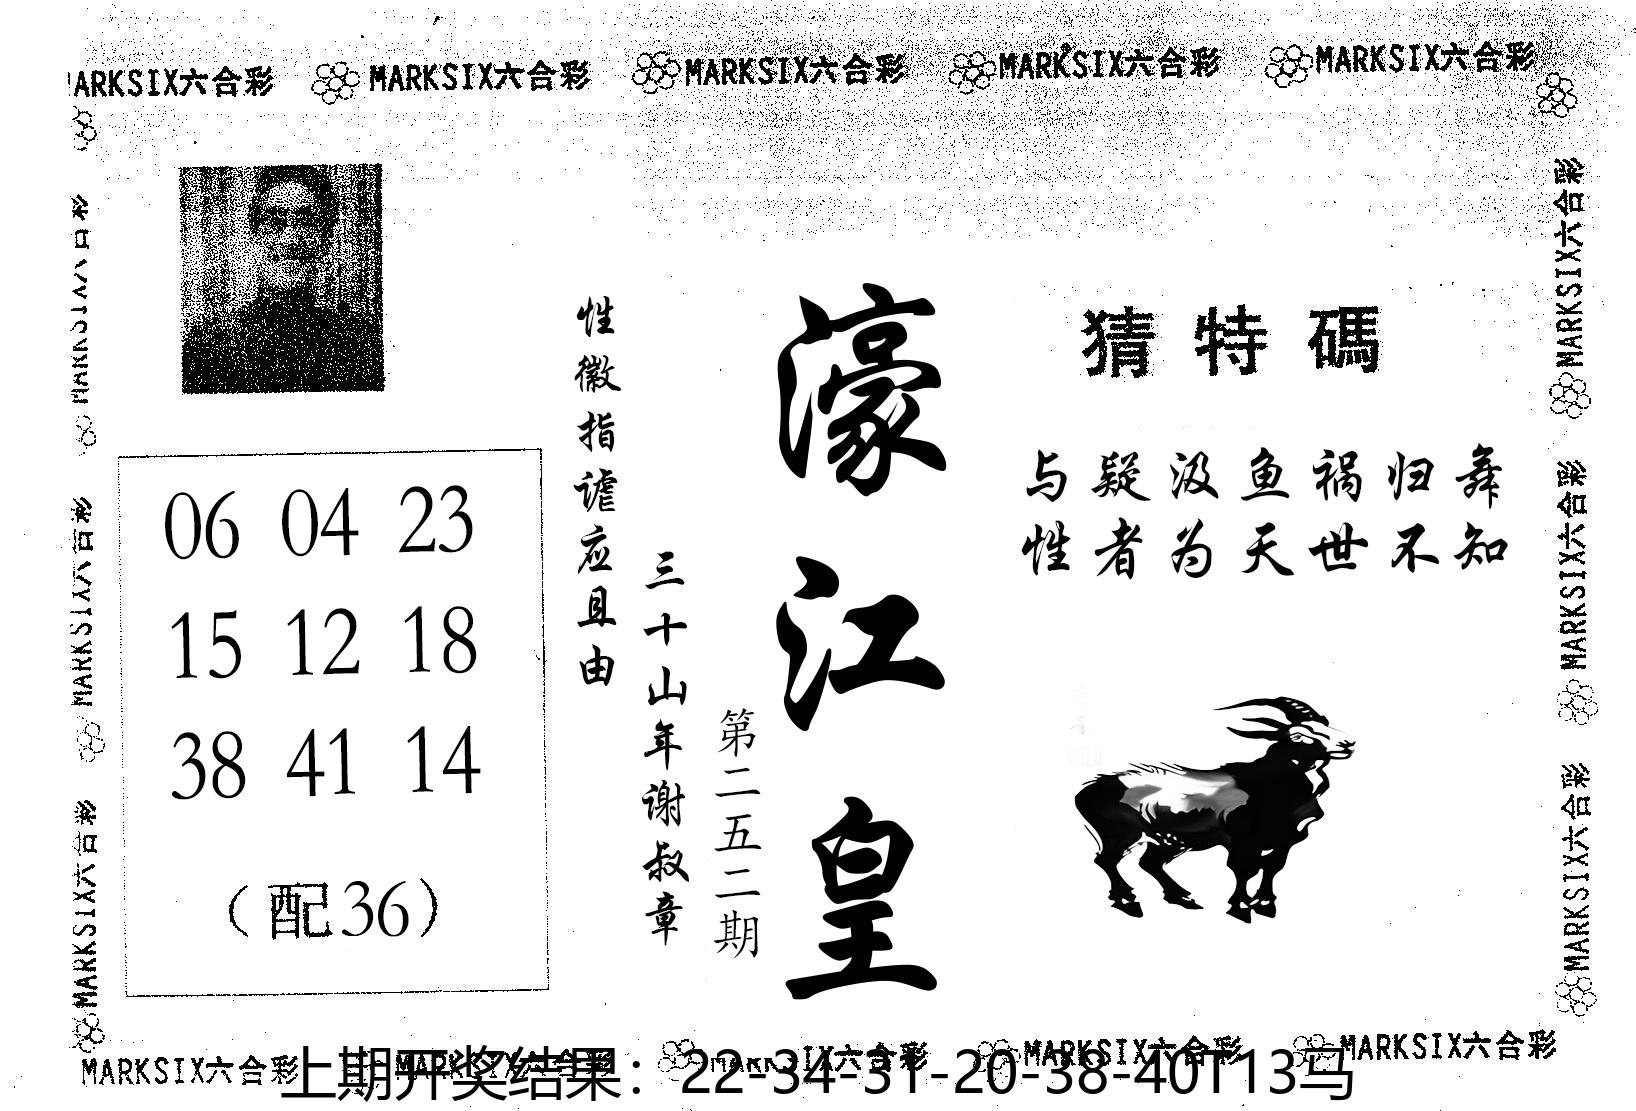 MARKSIX六合彩 MARKSIX六合彩 MARKSIX六合彩 MARKSIX六合彩 MARKSIX六合彩
MARKSIX六合彩 MARKSIX六合彩 MARKSIX六合彩
MARKSIX六合彩 MARKSIX六合彩 MARKSIX六合彩
猜特碼
与疑汲鱼祸归舞
性者为天世不知
濠江皇
第二五二期
三十山年谢叔章
性徽指谑应且由
06 04 23
15 12 18
38 41 14
（配36）
MARKSIX六合彩 MARKSIX六合彩 MARKSIX六合彩 MARKSIX六合彩 MARKSIX六合彩
上期开奖结果：22-34-31-20-38-40T13马